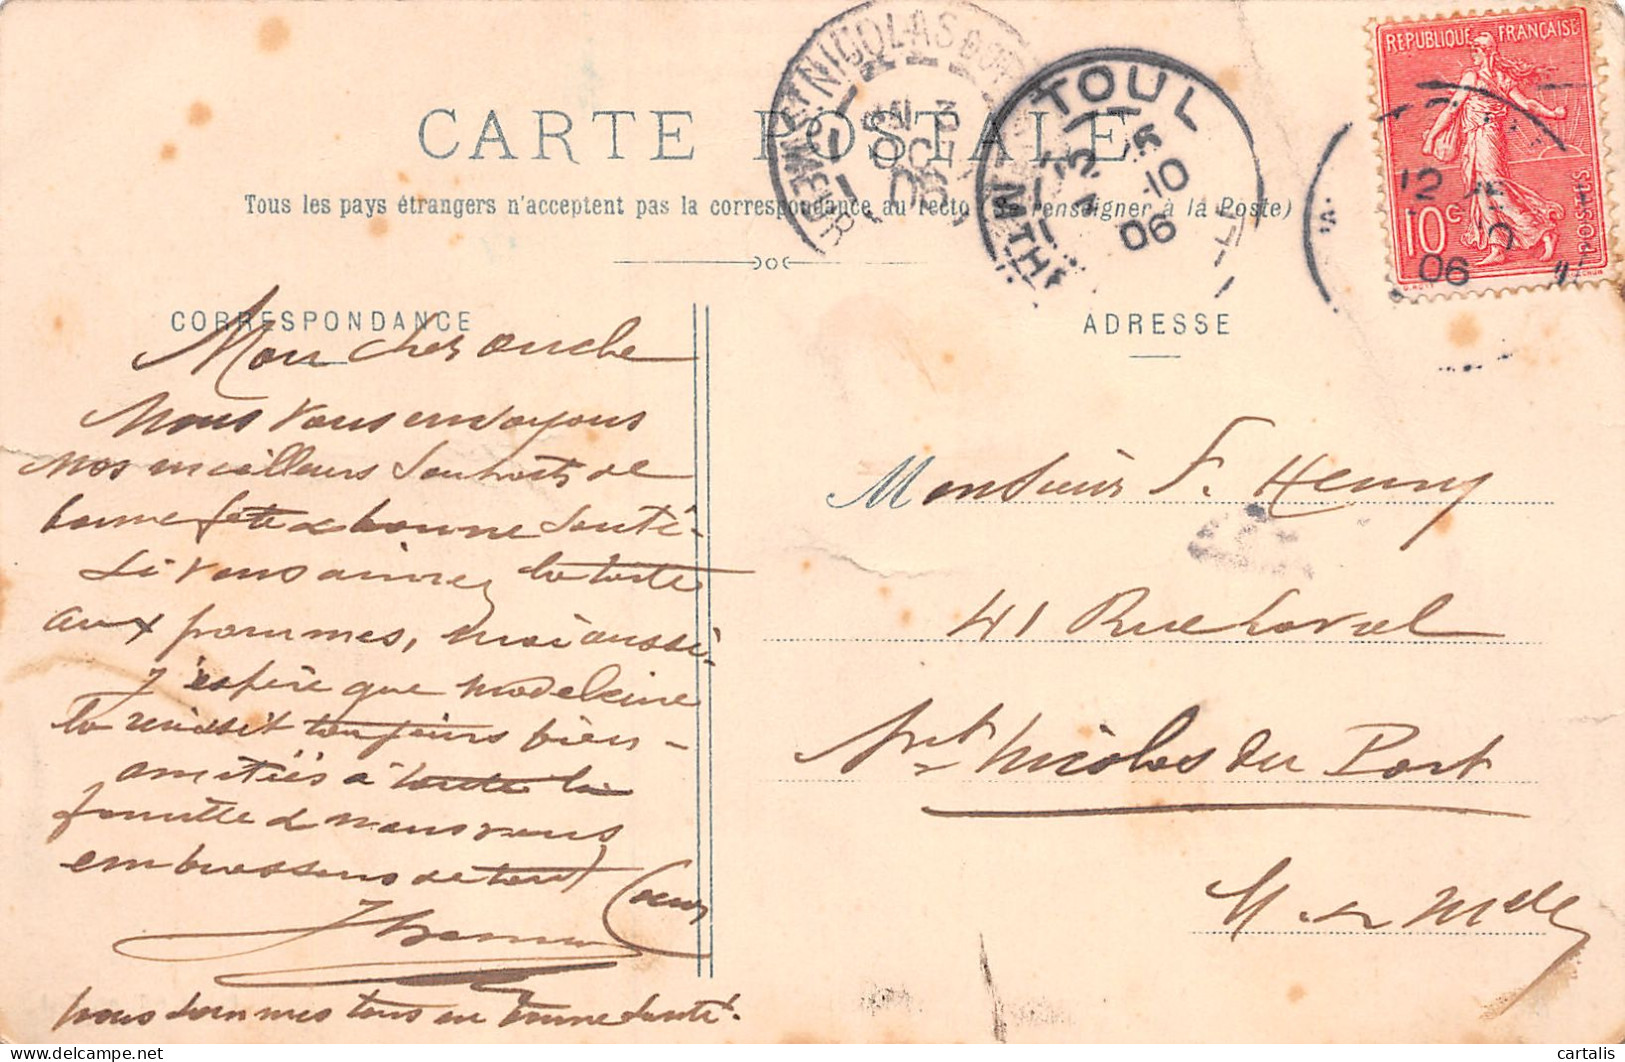 CARTE POSTALE
Tous les pays étrangers n'acceptent pas la correspondance au recto (Se renseigner à la Poste)
CORRESPONDANCE
Mon cher oncle
Nous vous envoyons
nos meilleurs souhaits de
bonne fête & bonne santé -
Si vous aimez la tarte
aux pommes, moi aussi -
J'espère que Madeleine
la réussit toujours bien -
amitiés à toute la
famille & nous vous
embrassons de tout
coeur
nous sommes tous en bonne santé.
ADRESSE
Monsieur F. Henry
41 Rue Laval
St Nicolas du Port
M. & Mlle
REPUBLIQUE FRANÇAISE
10c
POSTES
O. ROTY
TOUL
MTHE
5 -10
06
ST NICOLAS DU PORT
3
OCT
06
12
06
cartalis
delcampe.net